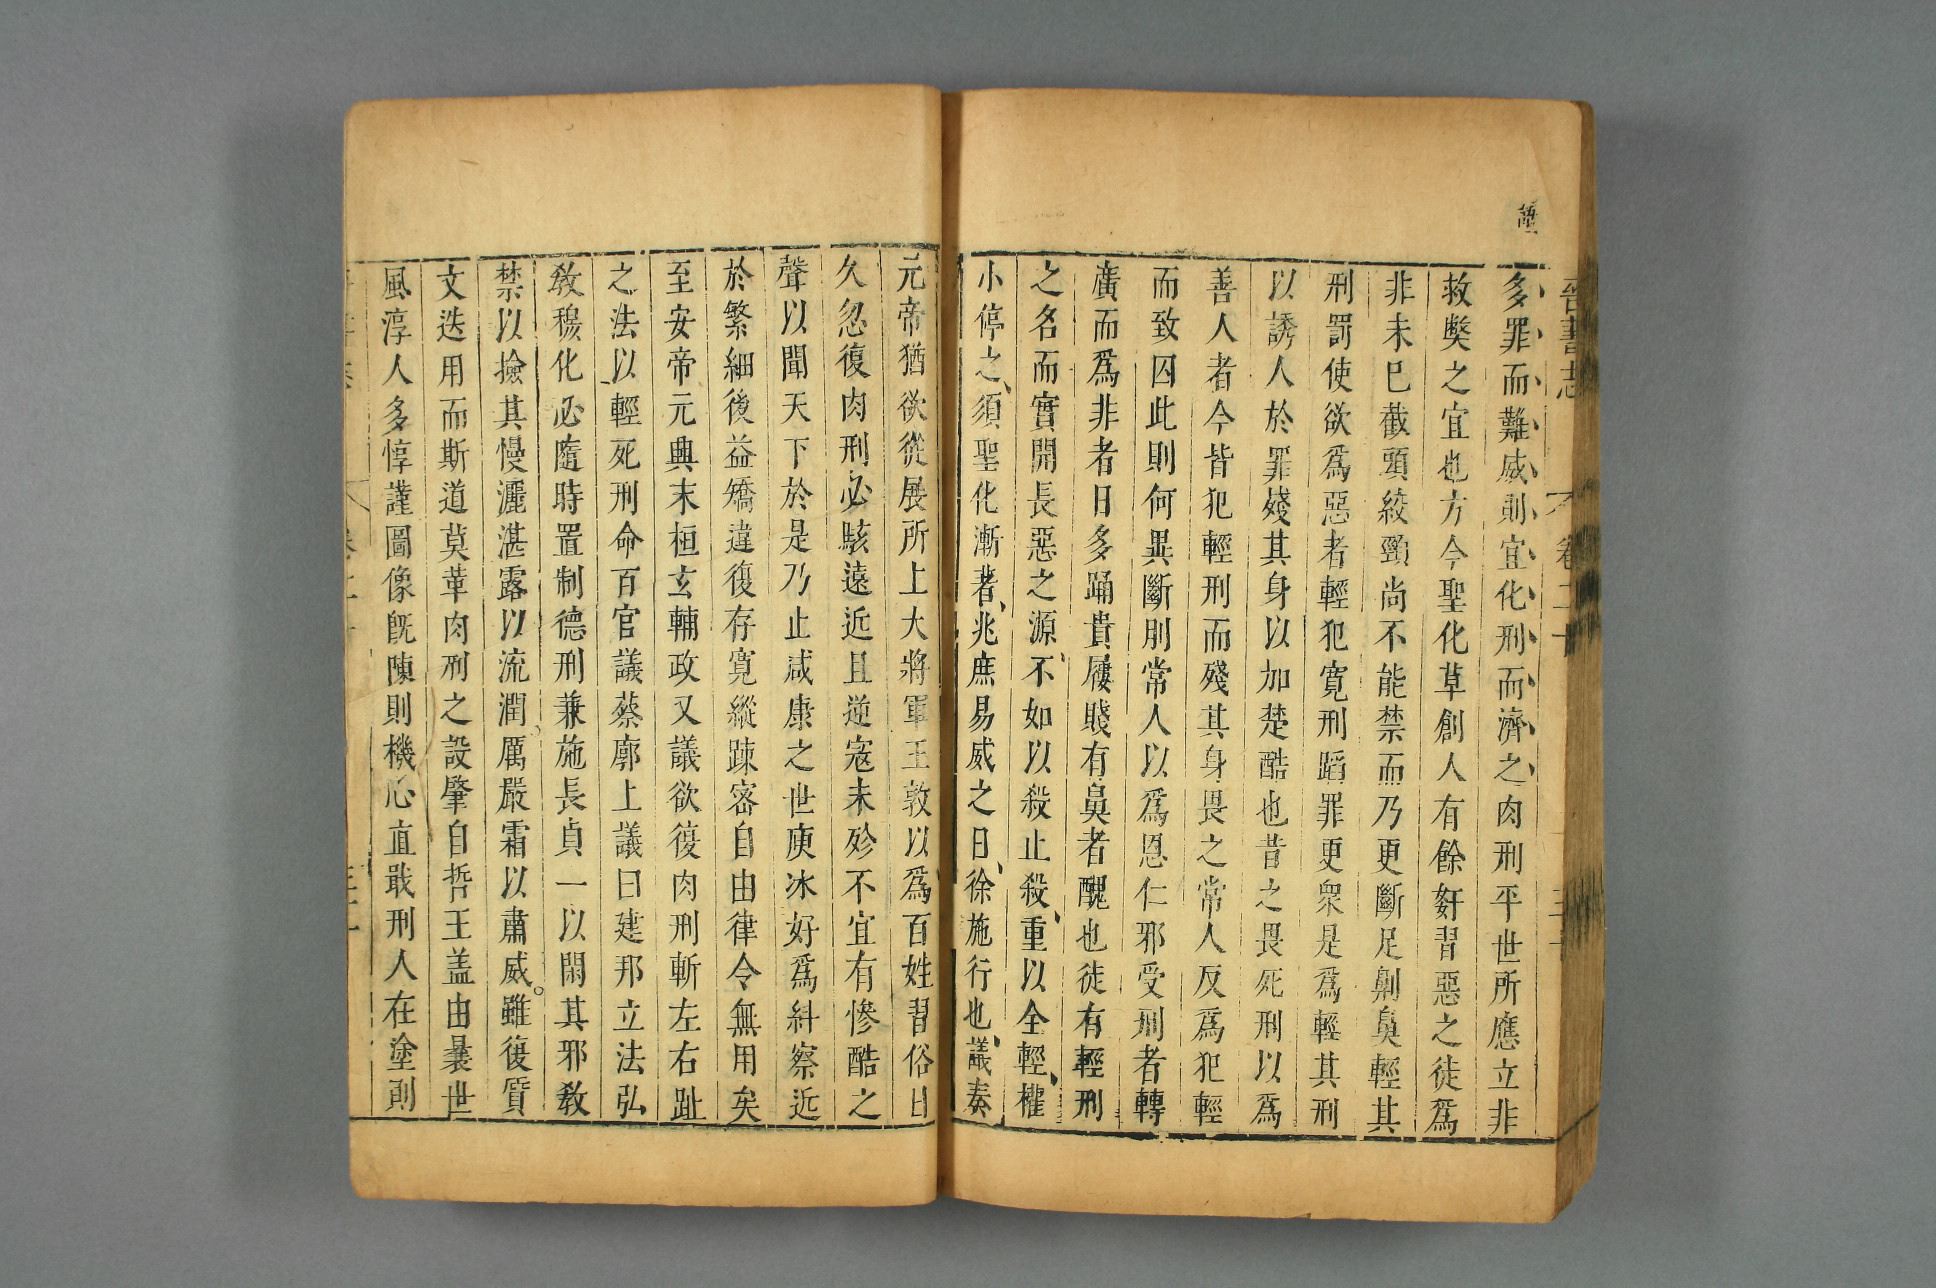 晉書志
卷二十
多罪而難威則宜化刑而濟之肉刑平世所應立非
救獘之宜也方今聖化草創人有餘姧習惡之徒爲
非未巳截頭絞頸尚不能禁而乃更斷足劓鼻輕其
刑罰使欲爲惡者輕犯寛刑蹈罪更衆是爲輕其刑
以誘人於罪殘其身以加楚酷也昔之畏死刑以爲
善人者今皆犯輕刑而殘其身畏之常人反爲犯輕
而致囚此則何異斷刖常人以爲恩仁邪受刑者轉
廣而爲非者日多踊貴屨賤有鼻者醜也徒有輕刑
之名而實開長惡之源不如以殺止殺重以全輕權
小停之須聖化漸著兆庶易威之日徐施行也議奏
元帝猶欲從展所上大將軍王敦以爲百姓習俗日
久忽復肉刑必駭遠近且逆寇未殄不宜有慘酷之
聲以聞天下於是乃止咸康之世庾冰好爲糾察近
於繁細後益矯違復存寛縱疎密自由律令無用矣
至安帝元興末桓玄輔政又議欲復肉刑斬左右趾
之法以輕死刑命百官議蔡廓上議曰建邦立法弘
敎穆化必隨時置制德刑兼施長貞一以閑其邪敎
禁以撿其慢灑湛露以流潤厲嚴霜以肅威雖復質
文迭用而斯道莫革肉刑之設肇自哲王盖由曩世
風淳人多惇謹圖像旣陳則機心直戢刑人在塗則